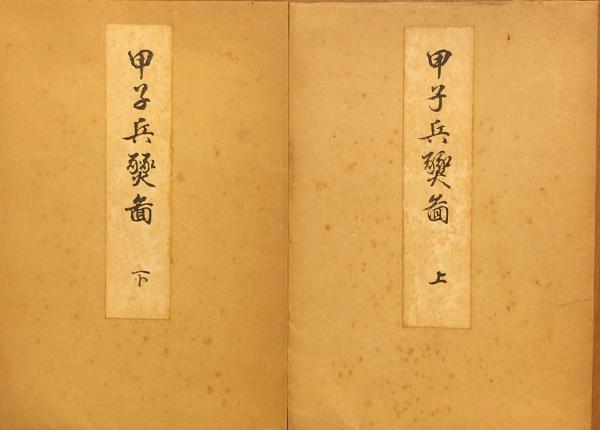 甲子兵燹啚 上
甲子兵燹啚 下